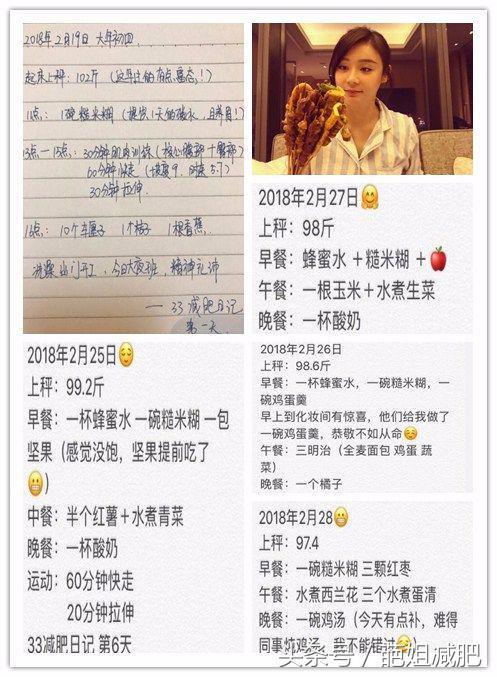 2018年2月19日 大年初四
起床上秤：102斤
11点：1碗糙米糊
13点一15点：30分钟肌肉训练
60分钟快走
30分钟拉伸
18点：10个车厘子 1个桔子 1根香蕉
洗澡出门开工，今日大夜班，
——33减肥日记
第一天
2018年2月27日🤗
上秤：98斤
早餐：蜂蜜水＋糙米糊＋🍎
午餐：一根玉米＋水煮生菜
晚餐：一杯酸奶
2018年2月25日😌
上秤：99.2斤
早餐：一杯蜂蜜水 一碗糙米糊 一包
坚果（感觉没饱，坚果提前吃了
😬）
中餐：半个红薯＋水煮青菜
晚餐：一杯酸奶
运动：60分钟快走
20分钟拉伸
33减肥日记 第6天
2018年2月26日
上秤：98.6斤
早餐：一杯蜂蜜水，一碗糙米糊，一
碗鸡蛋羹
早上到化妆间有惊喜，他们给我做了
一碗鸡蛋羹，恭敬不如从命☺️
午餐：三明治（全麦面包 鸡蛋 蔬
菜）
晚餐：一个橘子
2018年2月28😬
上秤：97.4
早餐：一碗糙米糊 三颗红枣
午餐：水煮西兰花 三个水煮蛋清
晚餐：一碗鸡汤（今天有点补，难得
同事炖鸡汤，我不能错过☺️）
头条号 / 葩姐减肥